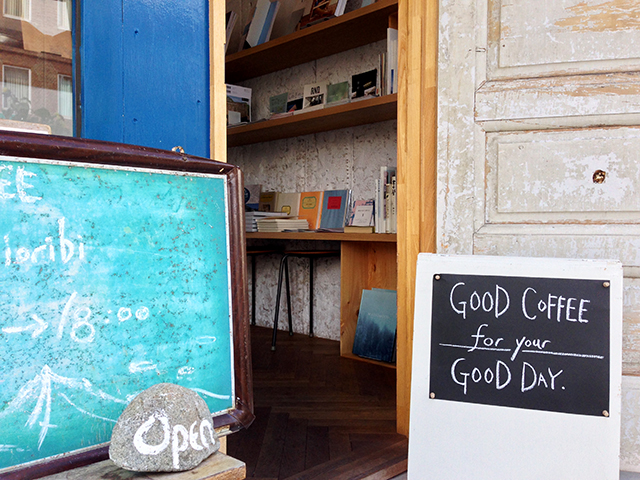 EE
ioribi
→18:00
Open
GOOD COFFEE
for your
GOOD DAY.